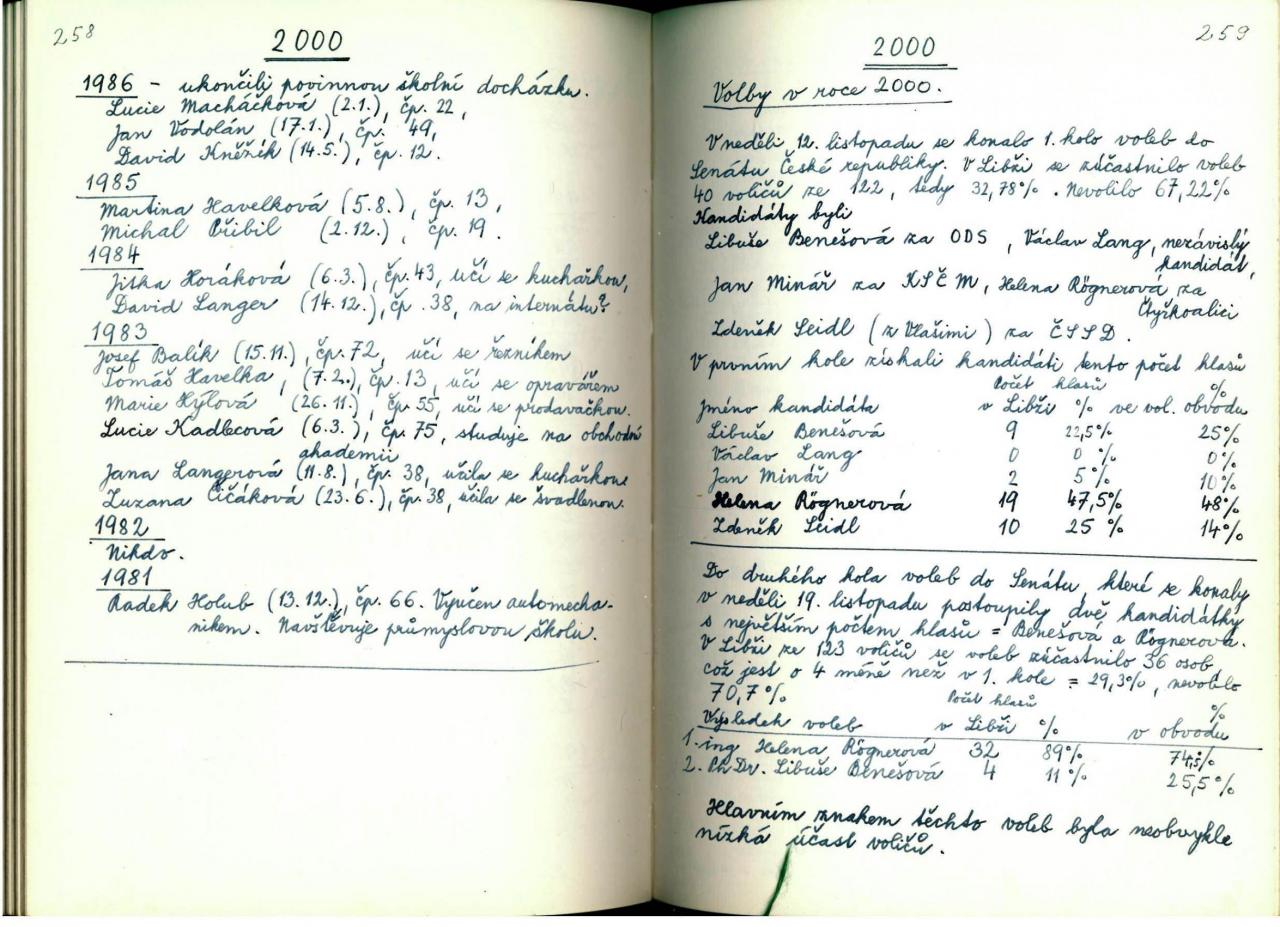 258
2000
1986 - ukončili povinnou školní docházku.
Lucie Macháčková (2.1.), čp. 22,
Jan Vodolán (17.1.), čp. 49,
David Kněžík (14.5.), čp. 12.
1985
Martina Havelková (5.8.), čp. 13,
Michal Přibil (2.12.), čp. 19.
1984
Jitka Horáková (6.3.), čp. 43, učí se kuchařkou,
David Langer (14.12.), čp. 38, na internátu?
1983
Josef Balík (15.11.), čp. 72, učí se řezníkem
Tomáš Havelka, (7.2.), čp. 13, učí se opravářem
Marie Hýlová (26.11.), čp. 55, učí se prodavačkou.
Lucie Kadlecová (6.3.), čp. 75, studuje na obchodní
akademii
Jana Langerová (11.8.), čp. 38, učila se kuchařkou
Zuzana Čičáková (23.6.), čp. 38, učila se švadlenou.
1982
Nikdo.
1981
Radek Holub (13.12.), čp. 66. Vyučen automecha-
nikem. Navštěvuje průmyslovou školu.
259
2000
Volby v roce 2000.
V neděli 12. listopadu se konalo 1. kolo voleb do
Senátu České republiky. V Libži se zúčastnilo voleb
40 voličů ze 122, tedy 32,78%. Nevolilo 67,22%
Kandidáty byli
Libuše Benešová za ODS, Václav Lang, nezávislý
kandidát,
Jan Minář za KSČM, Helena Rögnerová za
Čtyřkoalici
Zdeněk Seidl (z Vlašimi) za ČSSD.
V prvním kole získali kandidáti tento počet hlasů
Počet hlasů %
Jméno kandidáta v Libži % ve vol. obvodu
Libuše Benešová 9 22,5% 25%
Václav Lang 0 0 % 0%
Jan Minář 2 5 % 10%
Helena Rögnerová 19 47,5% 48%
Zdeněk Seidl 10 25 % 14%
Do druhého kola voleb do Senátu, které se konaly
v neděli 19. listopadu postoupily dvě kandidátky
s největším počtem hlasů = Benešová a Rögnerová.
V Libži ze 123 voličů se voleb zúčastnilo 36 osob,
což jest o 4 méně než v 1. kole = 29,3%, nevolilo
70,7%
Počet hlasů %
Výsledek voleb v Libži % v obvodu
1. ing Helena Rögnerová 32 89% 74,5%
2. PhDr. Libuše Benešová 4 11% 25,5%
Hlavním znakem těchto voleb byla neobvykle
nízká účast voličů.